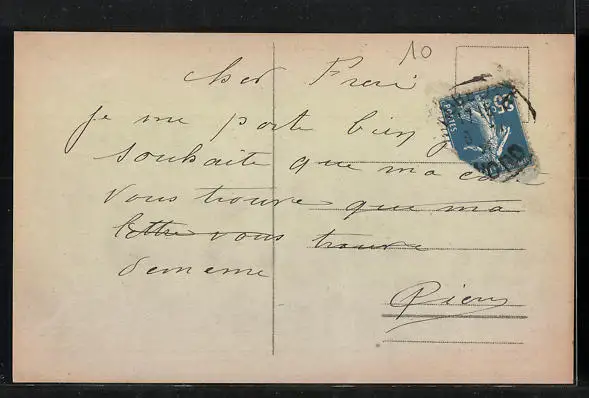 10
Cher Frere
je me porte bien j
souhaite que ma carte
vous trouve que ma
lettre vous trouve
de meme
25c
POSTES